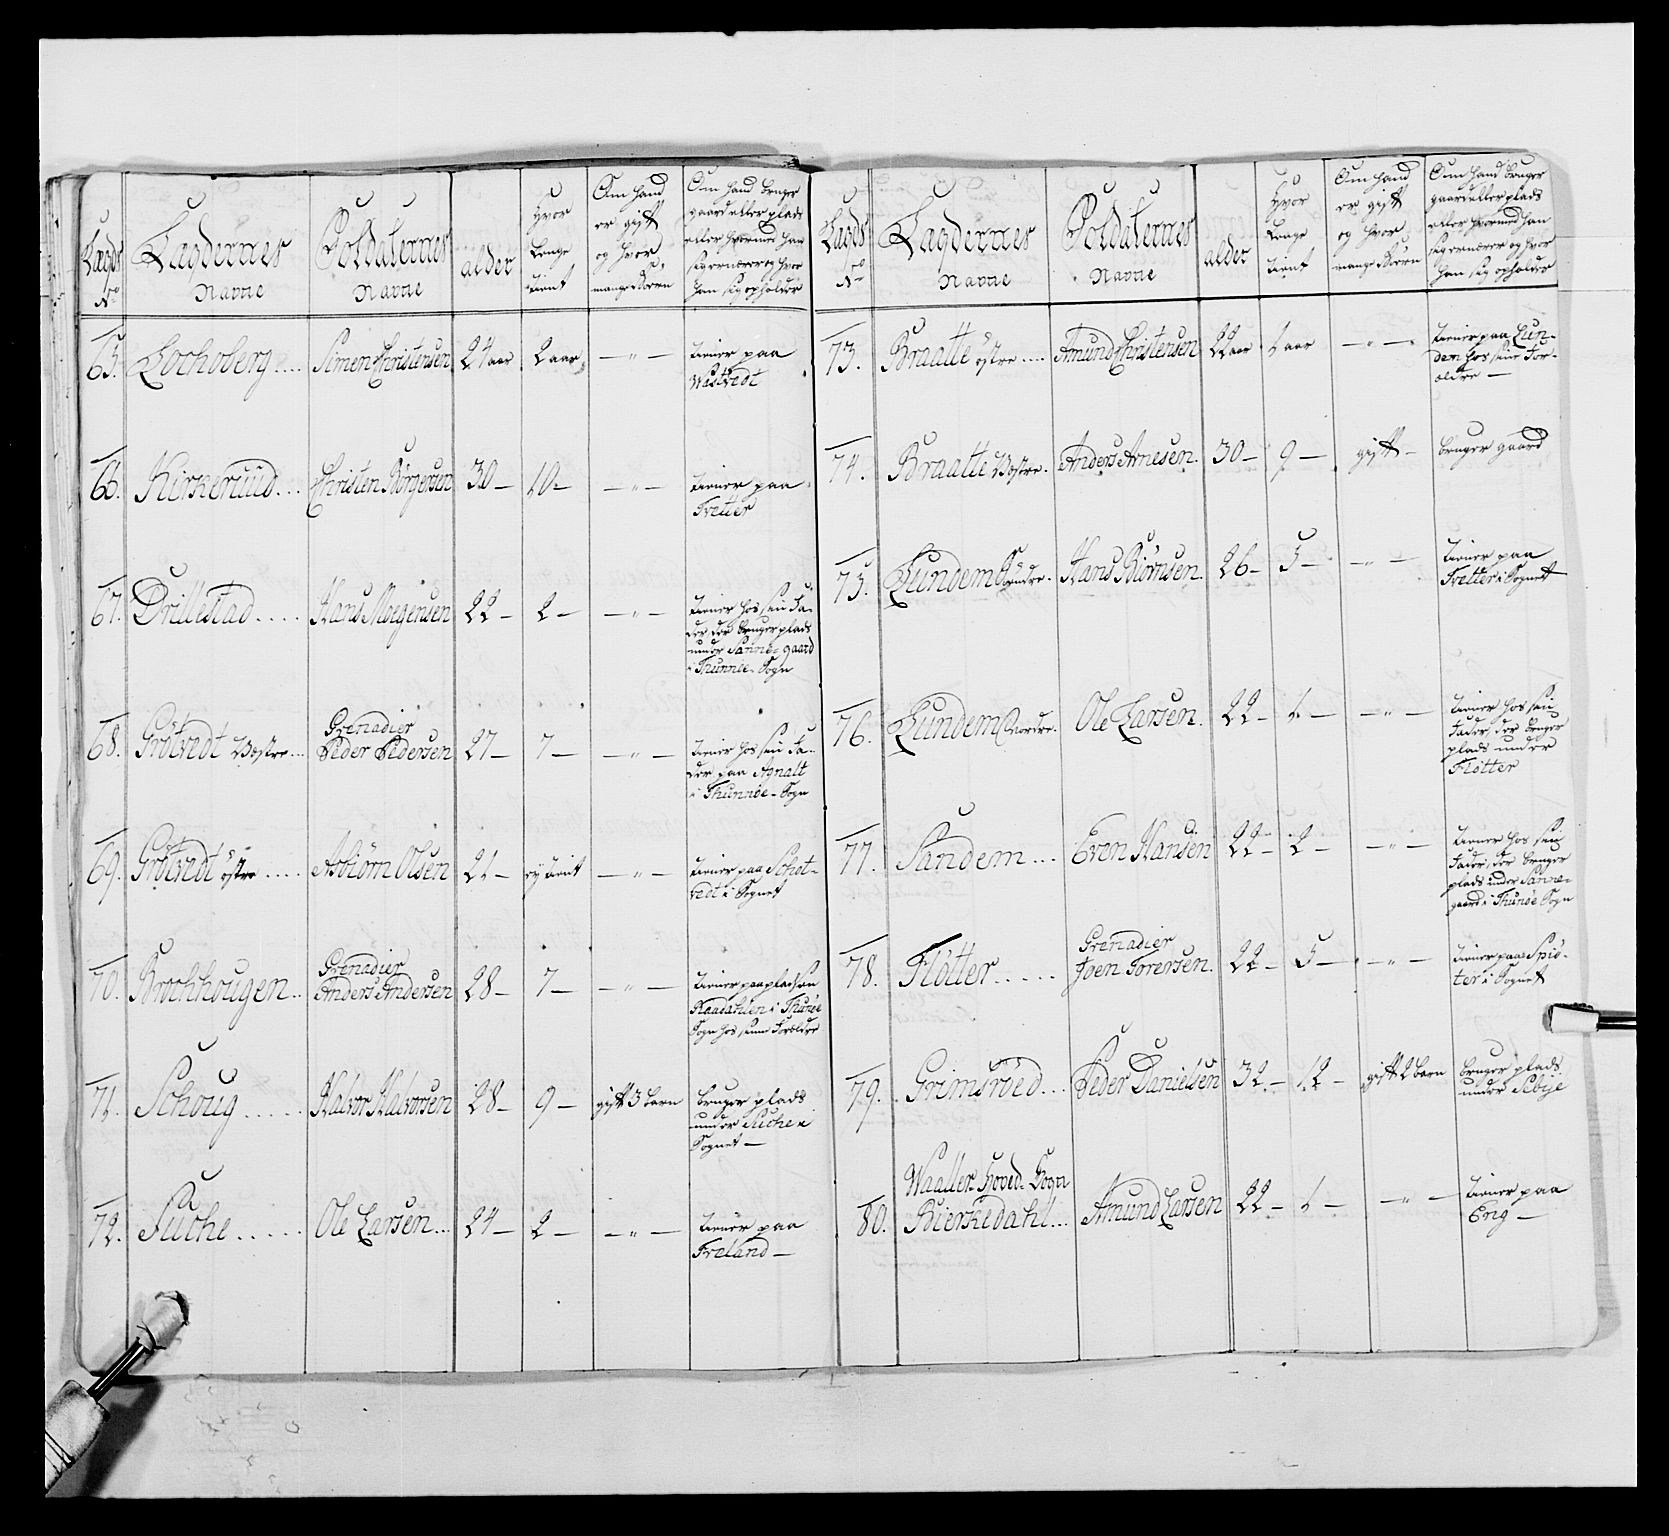 Lægds No
Lægdernes Navne
Soldaternes Navne
alder
Hvor Lenge tient
Om hand er gift og hvor mange Børn
Om hand bruger gaard eller plads eller hvormed han sig ernærer og hvor han sig opholder
65. Lochoberg.... Simen Christensen 24 aar 2 aar — " — tiener paa
Wastvedt
66. Kirkeruud... Christen Børgersen 30 — 10 — — " — tiener paa
Tvetter
67. Drillestad..... Hans Moegensen 22 — 2 — — " — tiener hos sin Fa-
der der bruger plads
under Sanne-gaard
i Thunnøe Sogn
68. Grötvedt Västre... Grenadier
Peder Pedersen 27 — 7 — — " — tiener hos sin Fa-
der paa Agnalt
i Thunnøe-Sogn
69. Grötvedt östre..... Asbiörn Olsen 21 — ey tient — " — tiener paa Schot-
vedt i Sognet
70. Brochhougen.. Grenadier
Anders Andersen 28 — 7 — — " — tiener paa pladsen
Raadahlen i Thunøe
Sogn hos sine Foreldre
71. Schoug..... Halvor Halvorsen 28 — 9 — gift 3 barn bruger plads
under Suche i
Sognet —
72. Suche..... Ole Larsen... 24 — 2 — — " — tiener paa
Freland —
Lægds No
Lægdernes Navne
Soldaternes Navne
alder
Hvor Lenge tient
Om hand er gift og hvor mange Børn
Om hand bruger gaard eller plads eller hvormed han sig ernærer og hvor han sig opholder
73. Braatte östre.... Amund Christensen 22 aar 1 aar — " — tiener paa Lun-
dem hos sine For-
ældre —
74. Braatte Vöstre. Anders Arnesen. 30 — 9 — gift — bruger gaard
75. Lundem Søndre. Hans Biörnsen. 26 — 5 — — " — tiener paa
Tvetter i Sognet
76. Lundem Nordre. Ole Larsen. 22 — 1 — — " — tiener hos sin
Fader, der bruger
plads under
Flötter
77. Sandem... Even Hansen 22 — 2 — — " — tiener hos sin
Fader, der bruger
plads under Sanne-
gaard i Thunøe Sogn
78. Flötter..... Grenadier
Joen Torersen. 22 — 5 — — " — tiener paa Spiö-
ter i Sognet
79. Grimsröed... Peder Danielsen 32 — 12 — gift 2 barn bruger plads
under Sebye
Waaller Hoved-Sogn
80. Bierkedahl... Amund Larsen 22 — 1 — — " — tiener paa
Eng —